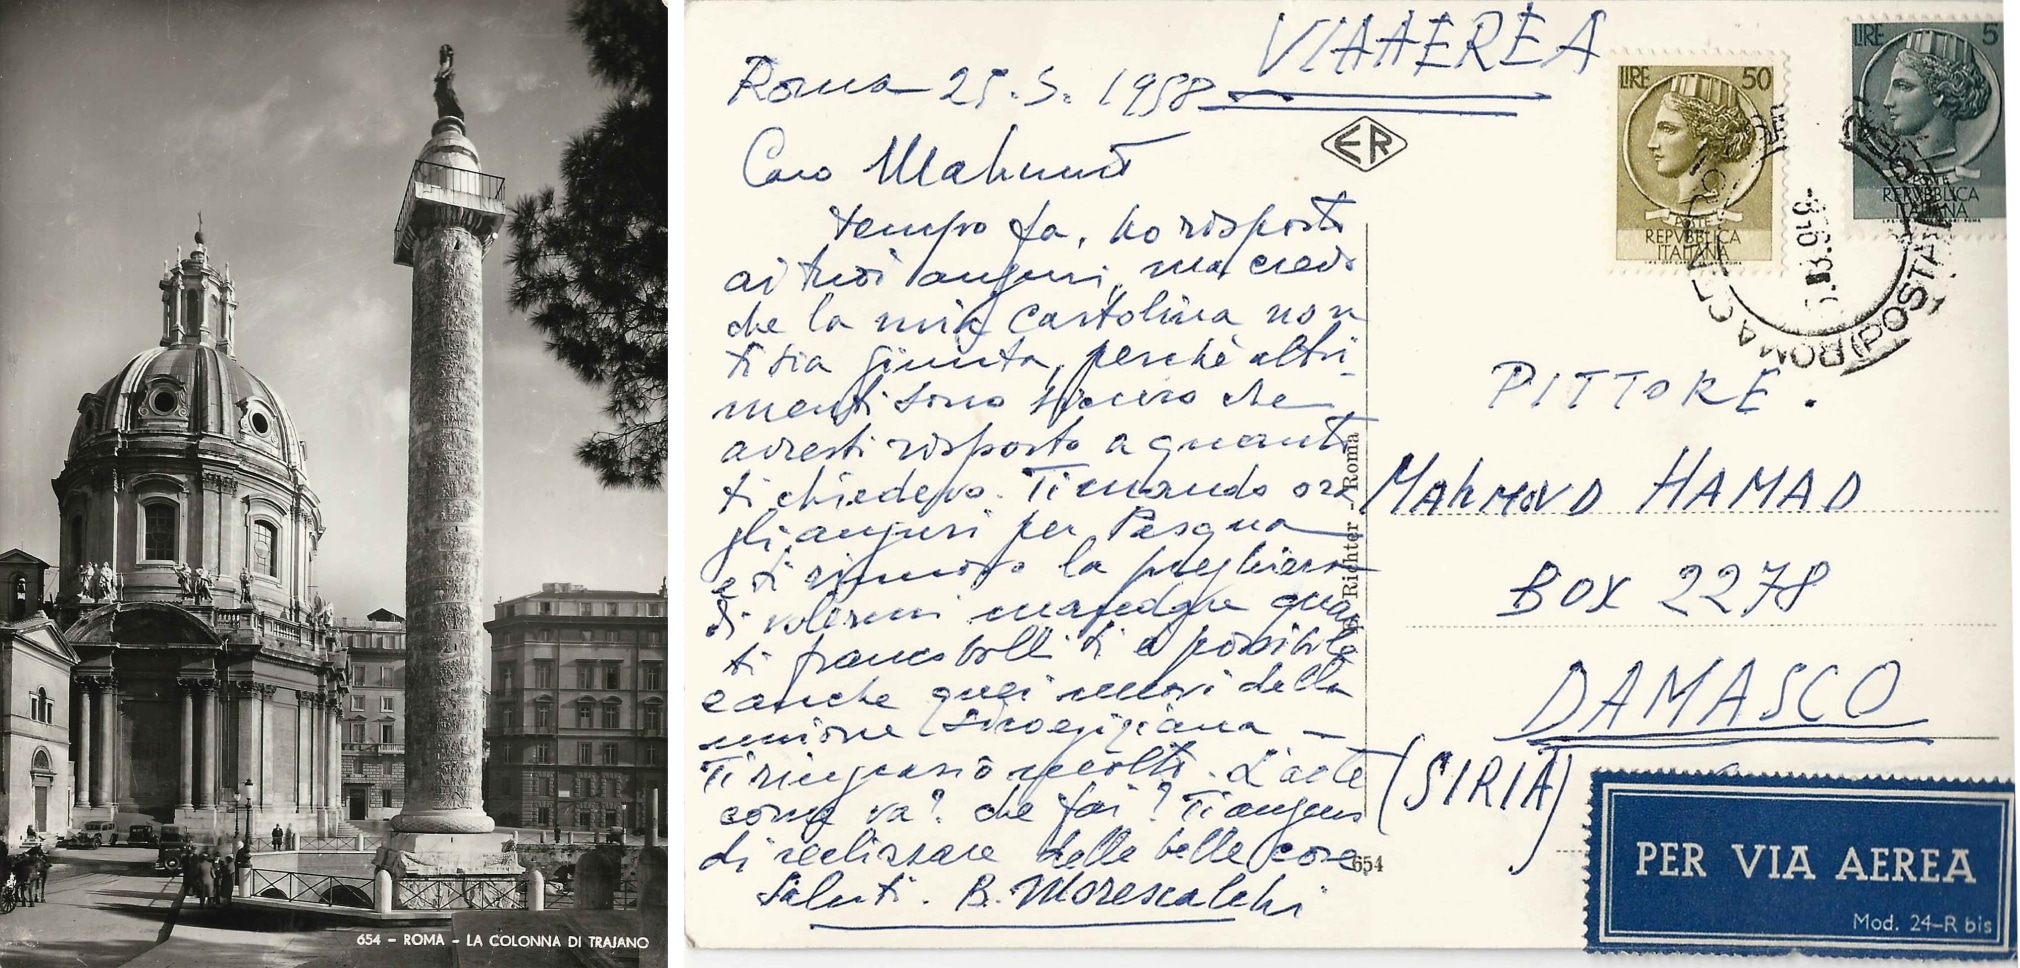 654 - ROMA - LA COLONNA DI TRAJANO
VIA AEREA
Roma 25.3.1958
Caro Mahmud
tempo fa, ho risposto
ai tuoi auguri, ma credo
che la mia cartolina non
ti sia giunta, perchè altri-
menti sono sicuro che
avresti risposto a quanto
ti chiedevo. Ti mando ora
gli auguri per Pasqua
e ti rinnovo la preghiera
di volermi mandare quan
ti francobolli ti è possibile
e anche quei nuovi della
unione siroegiziana -
Ti ringrazio molto. L'arte
come va? che fai? Ti auguro
di realizzare delle belle cose
Saluti. B. Morescalchi
ER
E. Richter - Roma
654
LIRE 50
POSTE
REPVBBLICA
ITALIANA
LIRE 5
POSTE
REPVBBLICA
ITALIANA
ROMA
(POSTA
PITTORE.
MAHMOVD HAMAD
BOX 2278
DAMASCO
(SIRIA)
PER VIA AEREA
Mod. 24-R bis